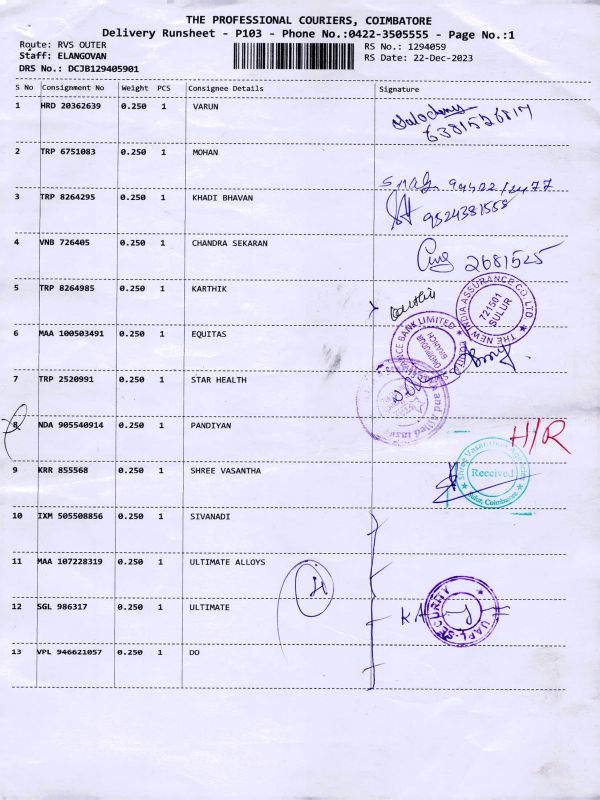 THE PROFESSIONAL COURIERS, COIMBATORE
Delivery Runsheet - P103 - Phone No.:0422-3505555 - Page No.:1
Route: RVS OUTER RS No.: 1294059
Staff: ELANGOVAN RS Date: 22-Dec-2023
DRS No.: DCJB129405901
S No Consignment No Weight PCS Consignee Details Signature
1 HRD 20362639 0.250 1 VARUN
6381526817
2 TRP 6751083 0.250 1 MOHAN
3 TRP 8264295 0.250 1 KHADI BHAVAN
9524381558
4 VNB 726405 0.250 1 CHANDRA SEKARAN
2681525
5 TRP 8264985 0.250 1 KARTHIK
Karthik
THE NEW INDIA ASSURANCE CO. LTD
721501
SULUR
6 MAA 100503491 0.250 1 EQUITAS
FINANCE BANK LIMITED
BRANCH
7 TRP 2520991 0.250 1 STAR HEALTH
and Allied Insu
8 NDA 905540914 0.250 1 PANDIYAN
H/R
9 KRR 855568 0.250 1 SHREE VASANTHA
Shree Vasantha
Received
Sulur, Coimbatore
10 IXM 505508856 0.250 1 SIVANADI
11 MAA 107228319 0.250 1 ULTIMATE ALLOYS
12 SGL 986317 0.250 1 ULTIMATE
UAPL-SECURITY
13 VPL 946621057 0.250 1 DO